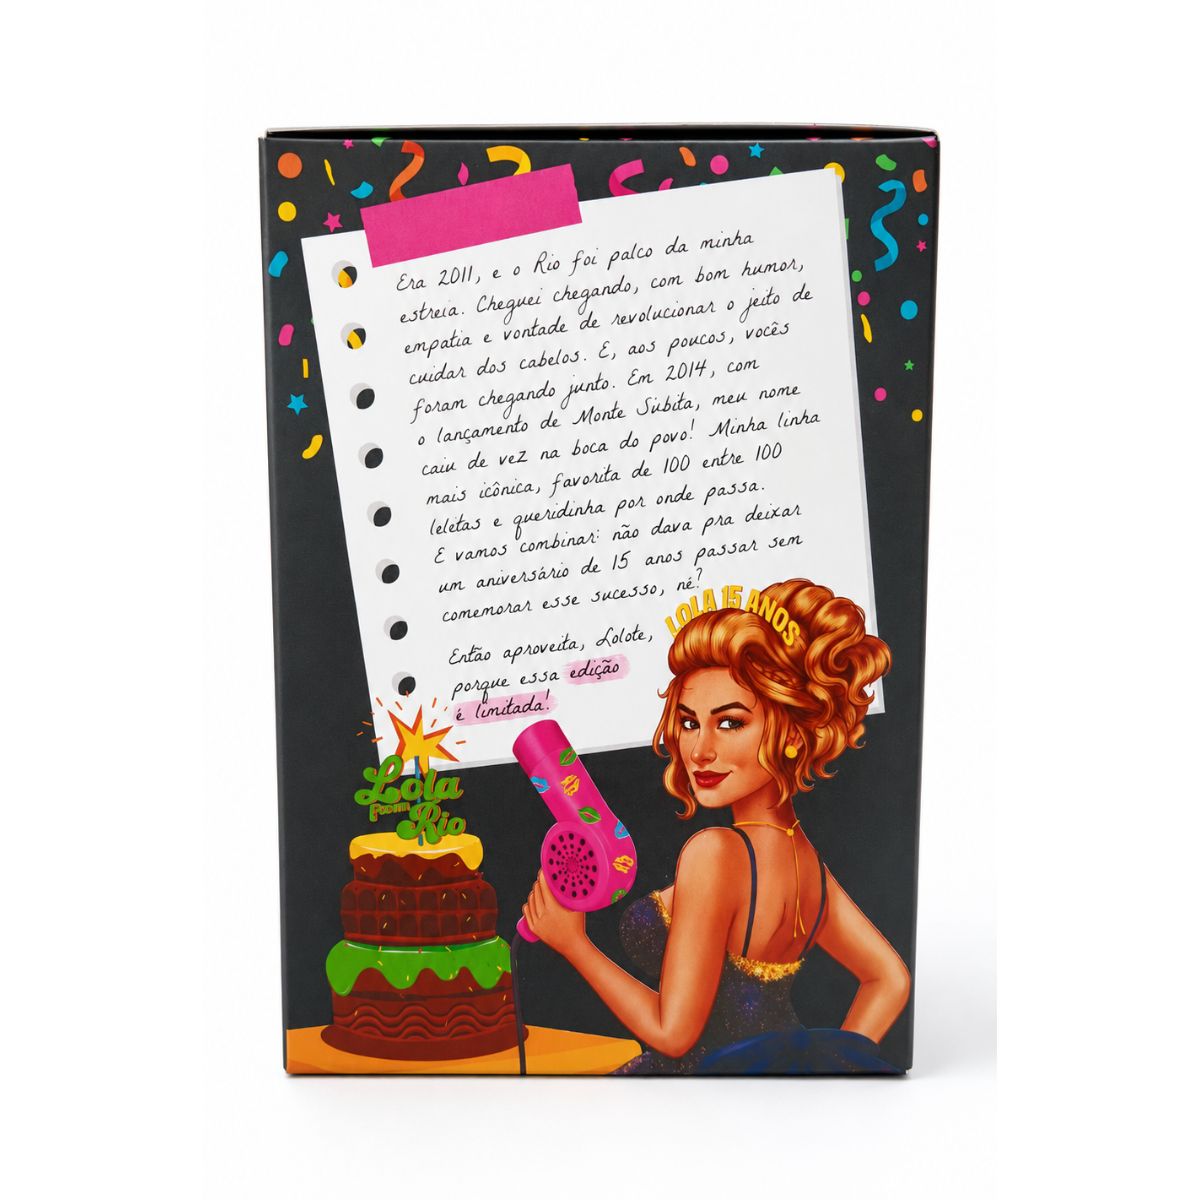 Era 2011, e o Rio foi palco da minha
estreia. Cheguei chegando, com bom humor,
empatia e vontade de revolucionar o jeito de
cuidar dos cabelos. E, aos poucos, vocês
foram chegando junto. Em 2014, com
o lançamento de Monte Súbita, meu nome
caiu de vez na boca do povo! Minha linha
mais icônica, favorita de 100 entre 100
leletas e queridinha por onde passa.
E vamos combinar: não dava pra deixar
um aniversário de 15 anos passar sem
comemorar esse sucesso, né?
Então aproveita, Lolote,
porque essa edição
é limitada!
LOLA 15 ANOS
Lola
From
Rio